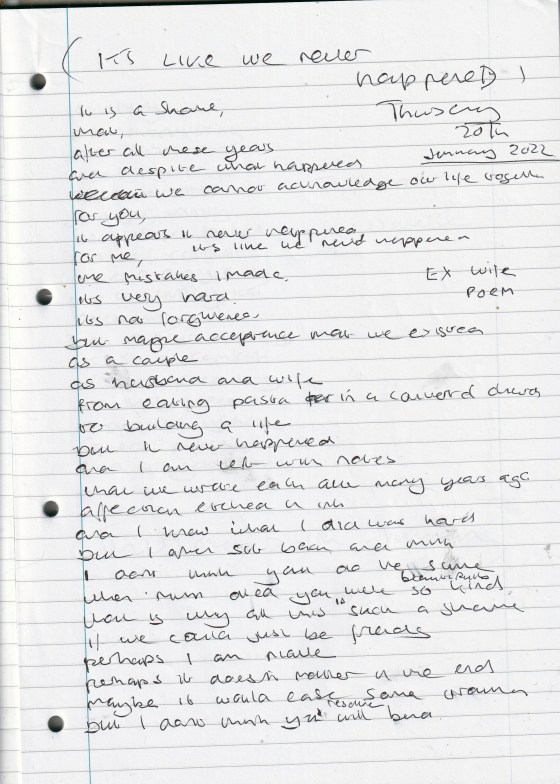 ( It's like we never
happened )
Thursday
20th
January 2022
It is a shame,
that,
after all these years
and despite what happened
we cannot acknowledge our life together
for you,
it appears it never happened
its like we never happened
for me,
the mistakes I made.
Ex wife
Poem
its very hard.
its not forgiveness
but maybe acceptance that we existed
as a couple
as husband and wife
from eating pasta in a converted
to building a life
but it never happened
and I am left with notes
that we wrote each other many years ago
affection etched in ink
and I know what I did was hard
but I often sit back and think
I dont think you do the same
when mum died you were so kind
beautifully
that is why all this is such a shame
if we could just be friends
perhaps I am naive
perhaps it doesn't matter in the end
maybe it would ease some trauma
but I dont think your resolve will bend